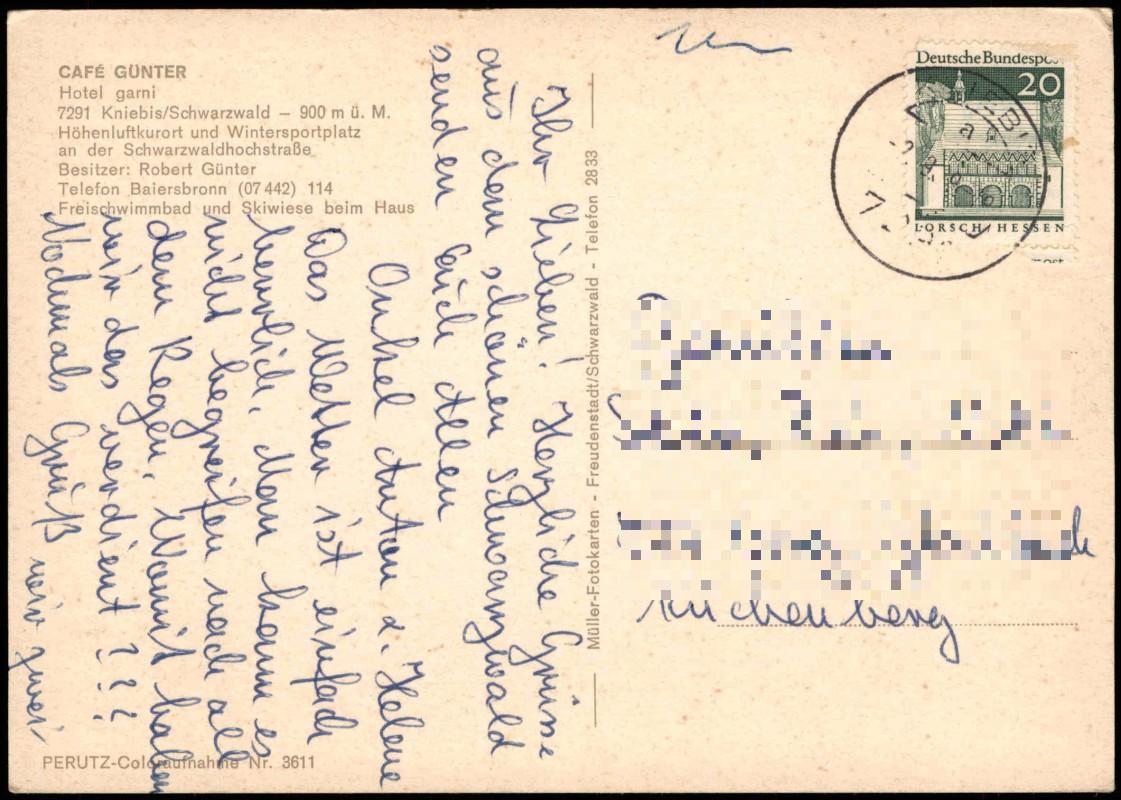 CAFÉ GÜNTER
Hotel garni
7291 Kniebis/Schwarzwald – 900 m ü. M.
Höhenluftkurort und Wintersportplatz
an der Schwarzwaldhochstraße
Besitzer: Robert Günter
Telefon Baiersbronn (07442) 114
Freischwimmbad und Skiwiese beim Haus
Ihr Lieben! Herzliche Grüsse
aus dem schönen Schwarzwald
senden Euch Allen
Onkel Anton u. Helene
Das Wetter ist einfach
herrlich. Man kann es
nicht begreifen nach all
dem Regen. Womit haben
wir das verdient ???
Nochmals Gruß wir zwei
PERUTZ-Coloraufnahme Nr. 3611
Müller-Fotokarten - Freudenstadt/Schwarzwald - Telefon 2833
Deutsche Bundespo
20
LORSCH/HESSEN